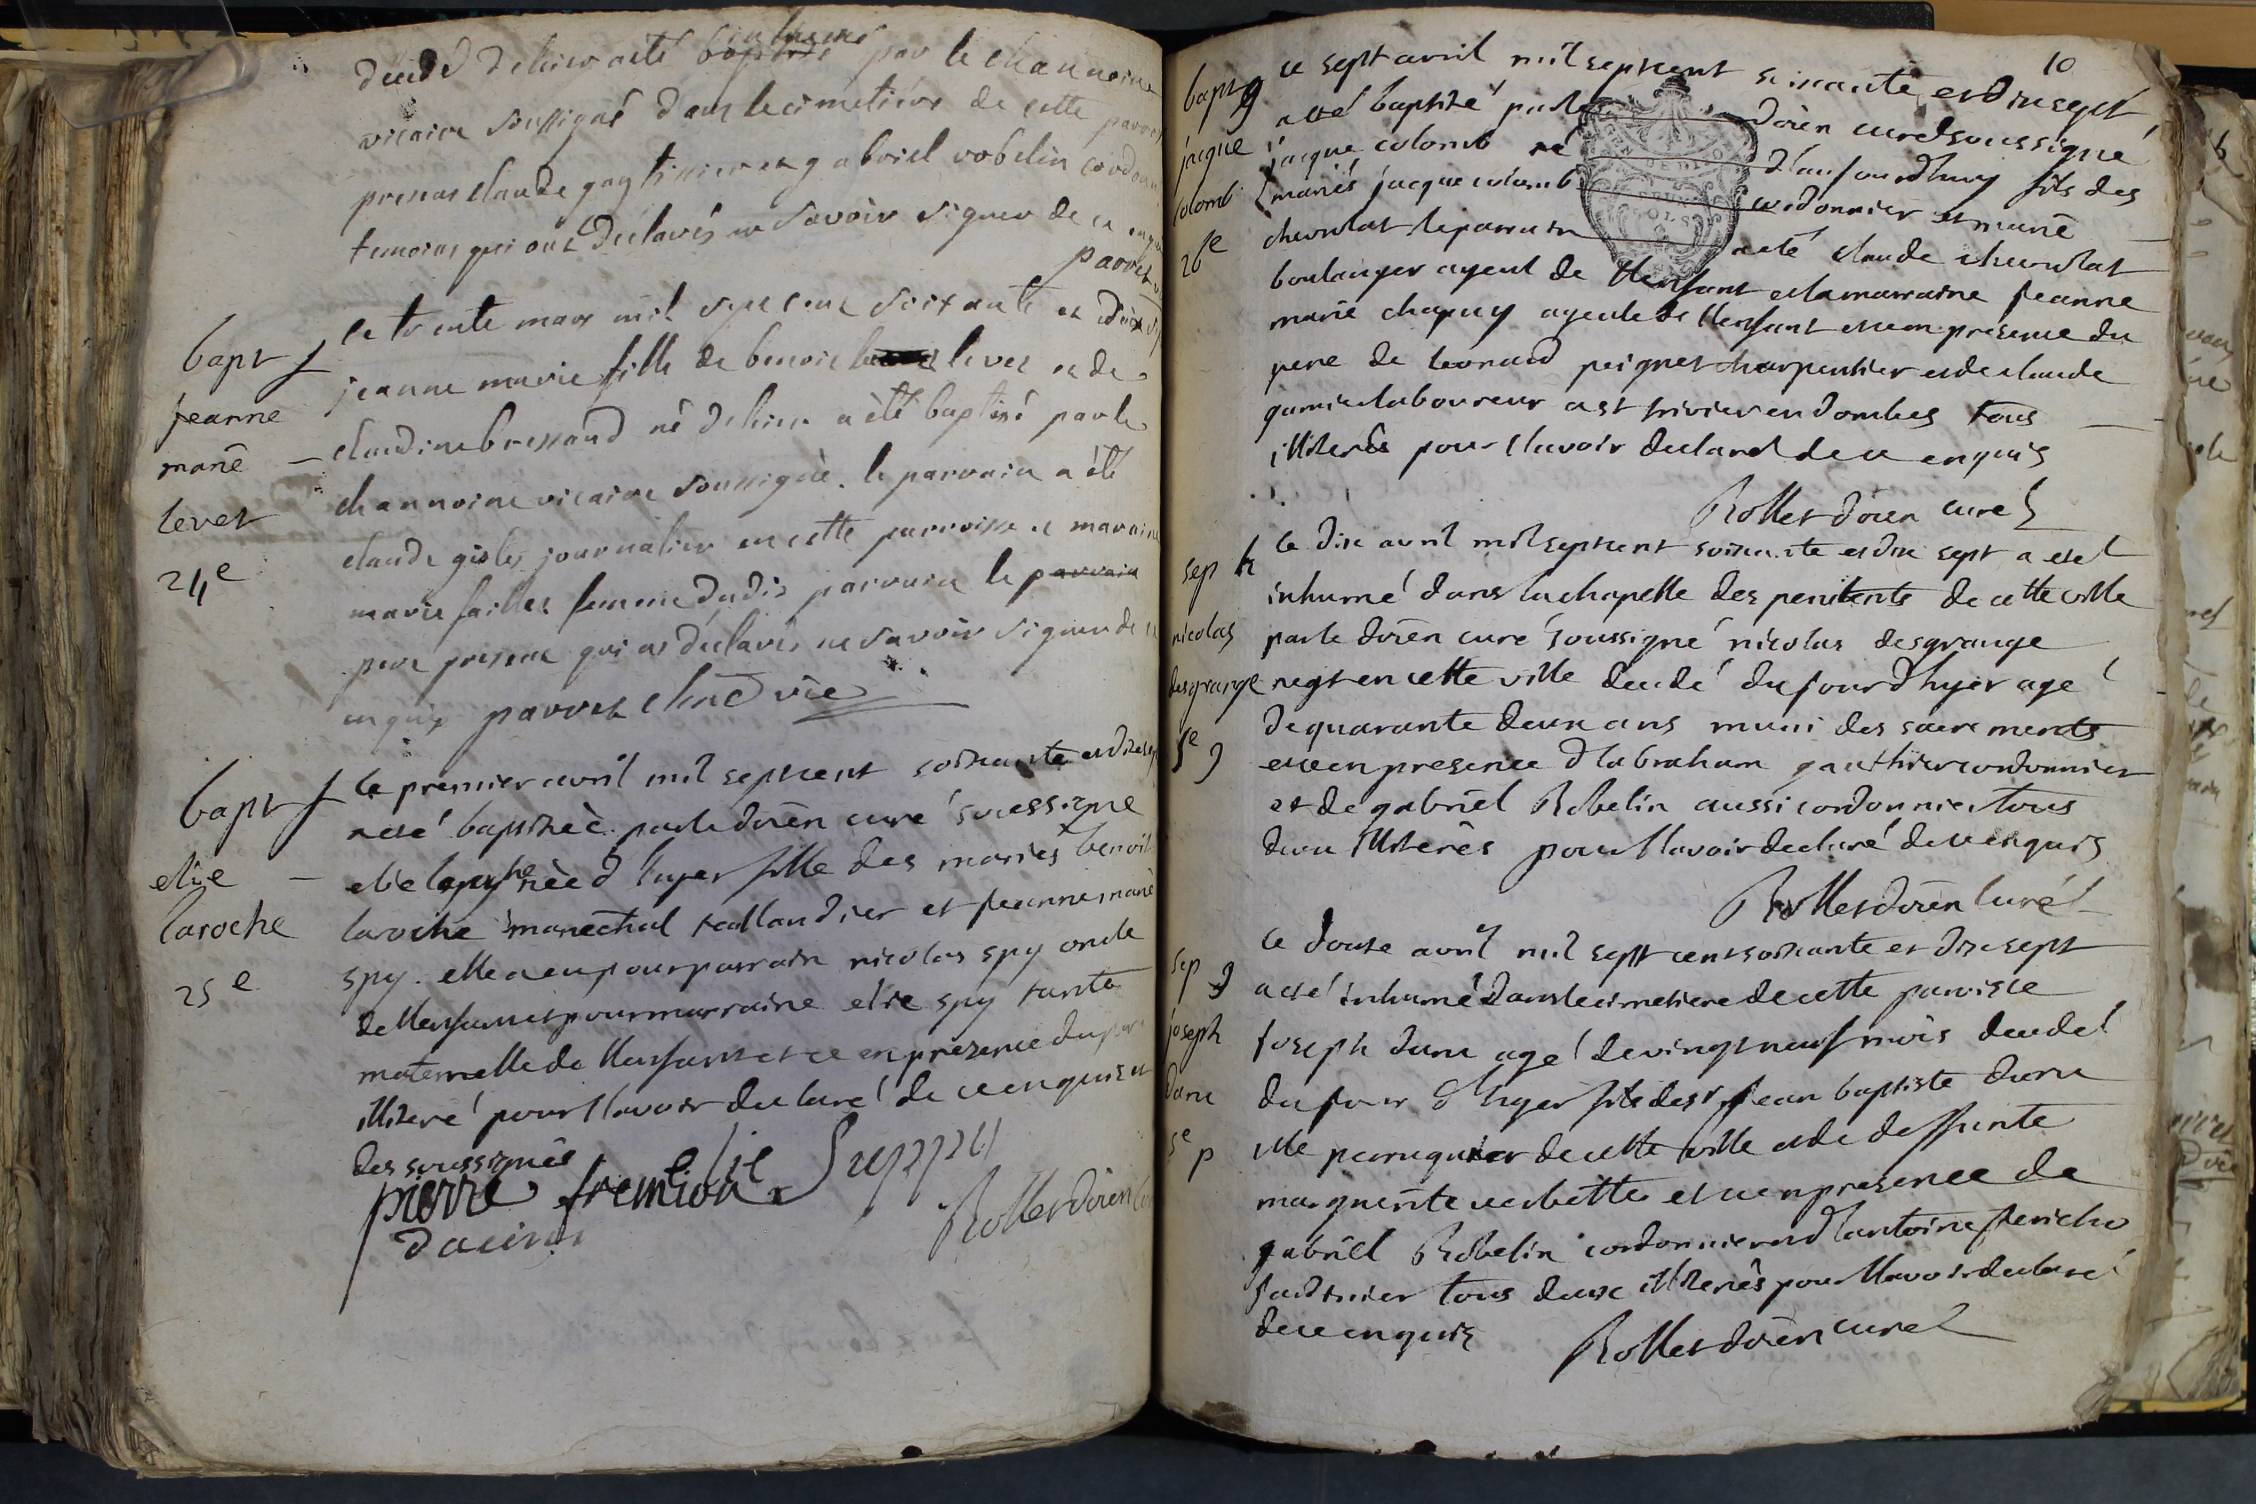 décédé d'hier a été baptisé inhumé par le channoine
vicaire soussigné dans le cimetière de cette parroi
présens claude gay tissier et gabriel robelin cordonn
temoins qui ont déclarés ne savoir signer de ce enqui
parret
bapt f
jeanne
marie
levet
24e
le trente mars mil sept cent soixante et dix
jeanne marie fille de benoit levet et de
claudine bressand né d'hier a été baptisé par le
channoine vicaire soussigné. le parrain a été
claude gielet journalier en cette parroisse et maraine
marie failles femme dudit parrain le parrain
pere present qui at déclarés ne savoir signer de
enquis parret chne vic
bapt f
elie
laroche
25e
le premier avril mil septcent soixante et dixsep
a eté baptizèe par le doïen curé soussigné
elie laroche nèe d'hyer fille des mariés benoit
laroche marechal taillandier et jeanne marie
spy. elle a eu pour parrain nicolas spy oncle
de l'enfant et pour marraine elie spy tante
maternelle de l'enfant et ce en présence du pere
illiteré pour l'avoir declaré de ce enquis et
des soussignés
elie Suppy
pierre fremion
dacier
Rollet doïen cu
10
bapt g
jacque
colomb
26e
ce sept avril mil septcent soixante et dixsept
a eté baptizé par le doïen curé soussigné
jacque colomb né d'aujourdhuy fils des
mariés jacque colomb cordonnier et marie
chevrolat le parrain a eté claude chevrolat
boulanger ayeul de l'enfant et la marraine jeanne
marie chapuy ayeule de l'enfant et ce en présence du
pere de leonard peignet charpentier et de claude
garnier laboureur a st trivier en dombes tous
illiterés pour l'avoir declaré de ce enquis
Rollet doïen curé
sep h
nicolas
desgrange
5e g
le dix avril mil septcent soixante et dix sept a eté
inhumé dans la chapelle des penitents de cette ville
par le doïen curé soussigné nicolas desgrange
negt en cette ville decedé du jour d'hyer agé
de quarante deux ans muni des sacrements
et ce en presence d'labraham gauthier cordonnier
et de gabriel Robelin aussi cordonnier tous
deux illiterés pour l'avoir declaré de ce enquis
Rollet doïen curé
sep g
joseph
daru
5e p
le douze avril mil sept cent soixante et dix sept
a eté inhumé dans le cimetiere de cette paroisse
joseph daru agé de vingt neuf mois decedé
du jour d'hyer fils de sr jean baptiste daru
me perruquier de cette ville et de deffunte
marguerite et ce en presence de
gabriel Robelin cordonnier et d'lantoine jericho
jardinier tous deux illiterés pour l'avoir declaré
de ce enquis Rollet doïen curé